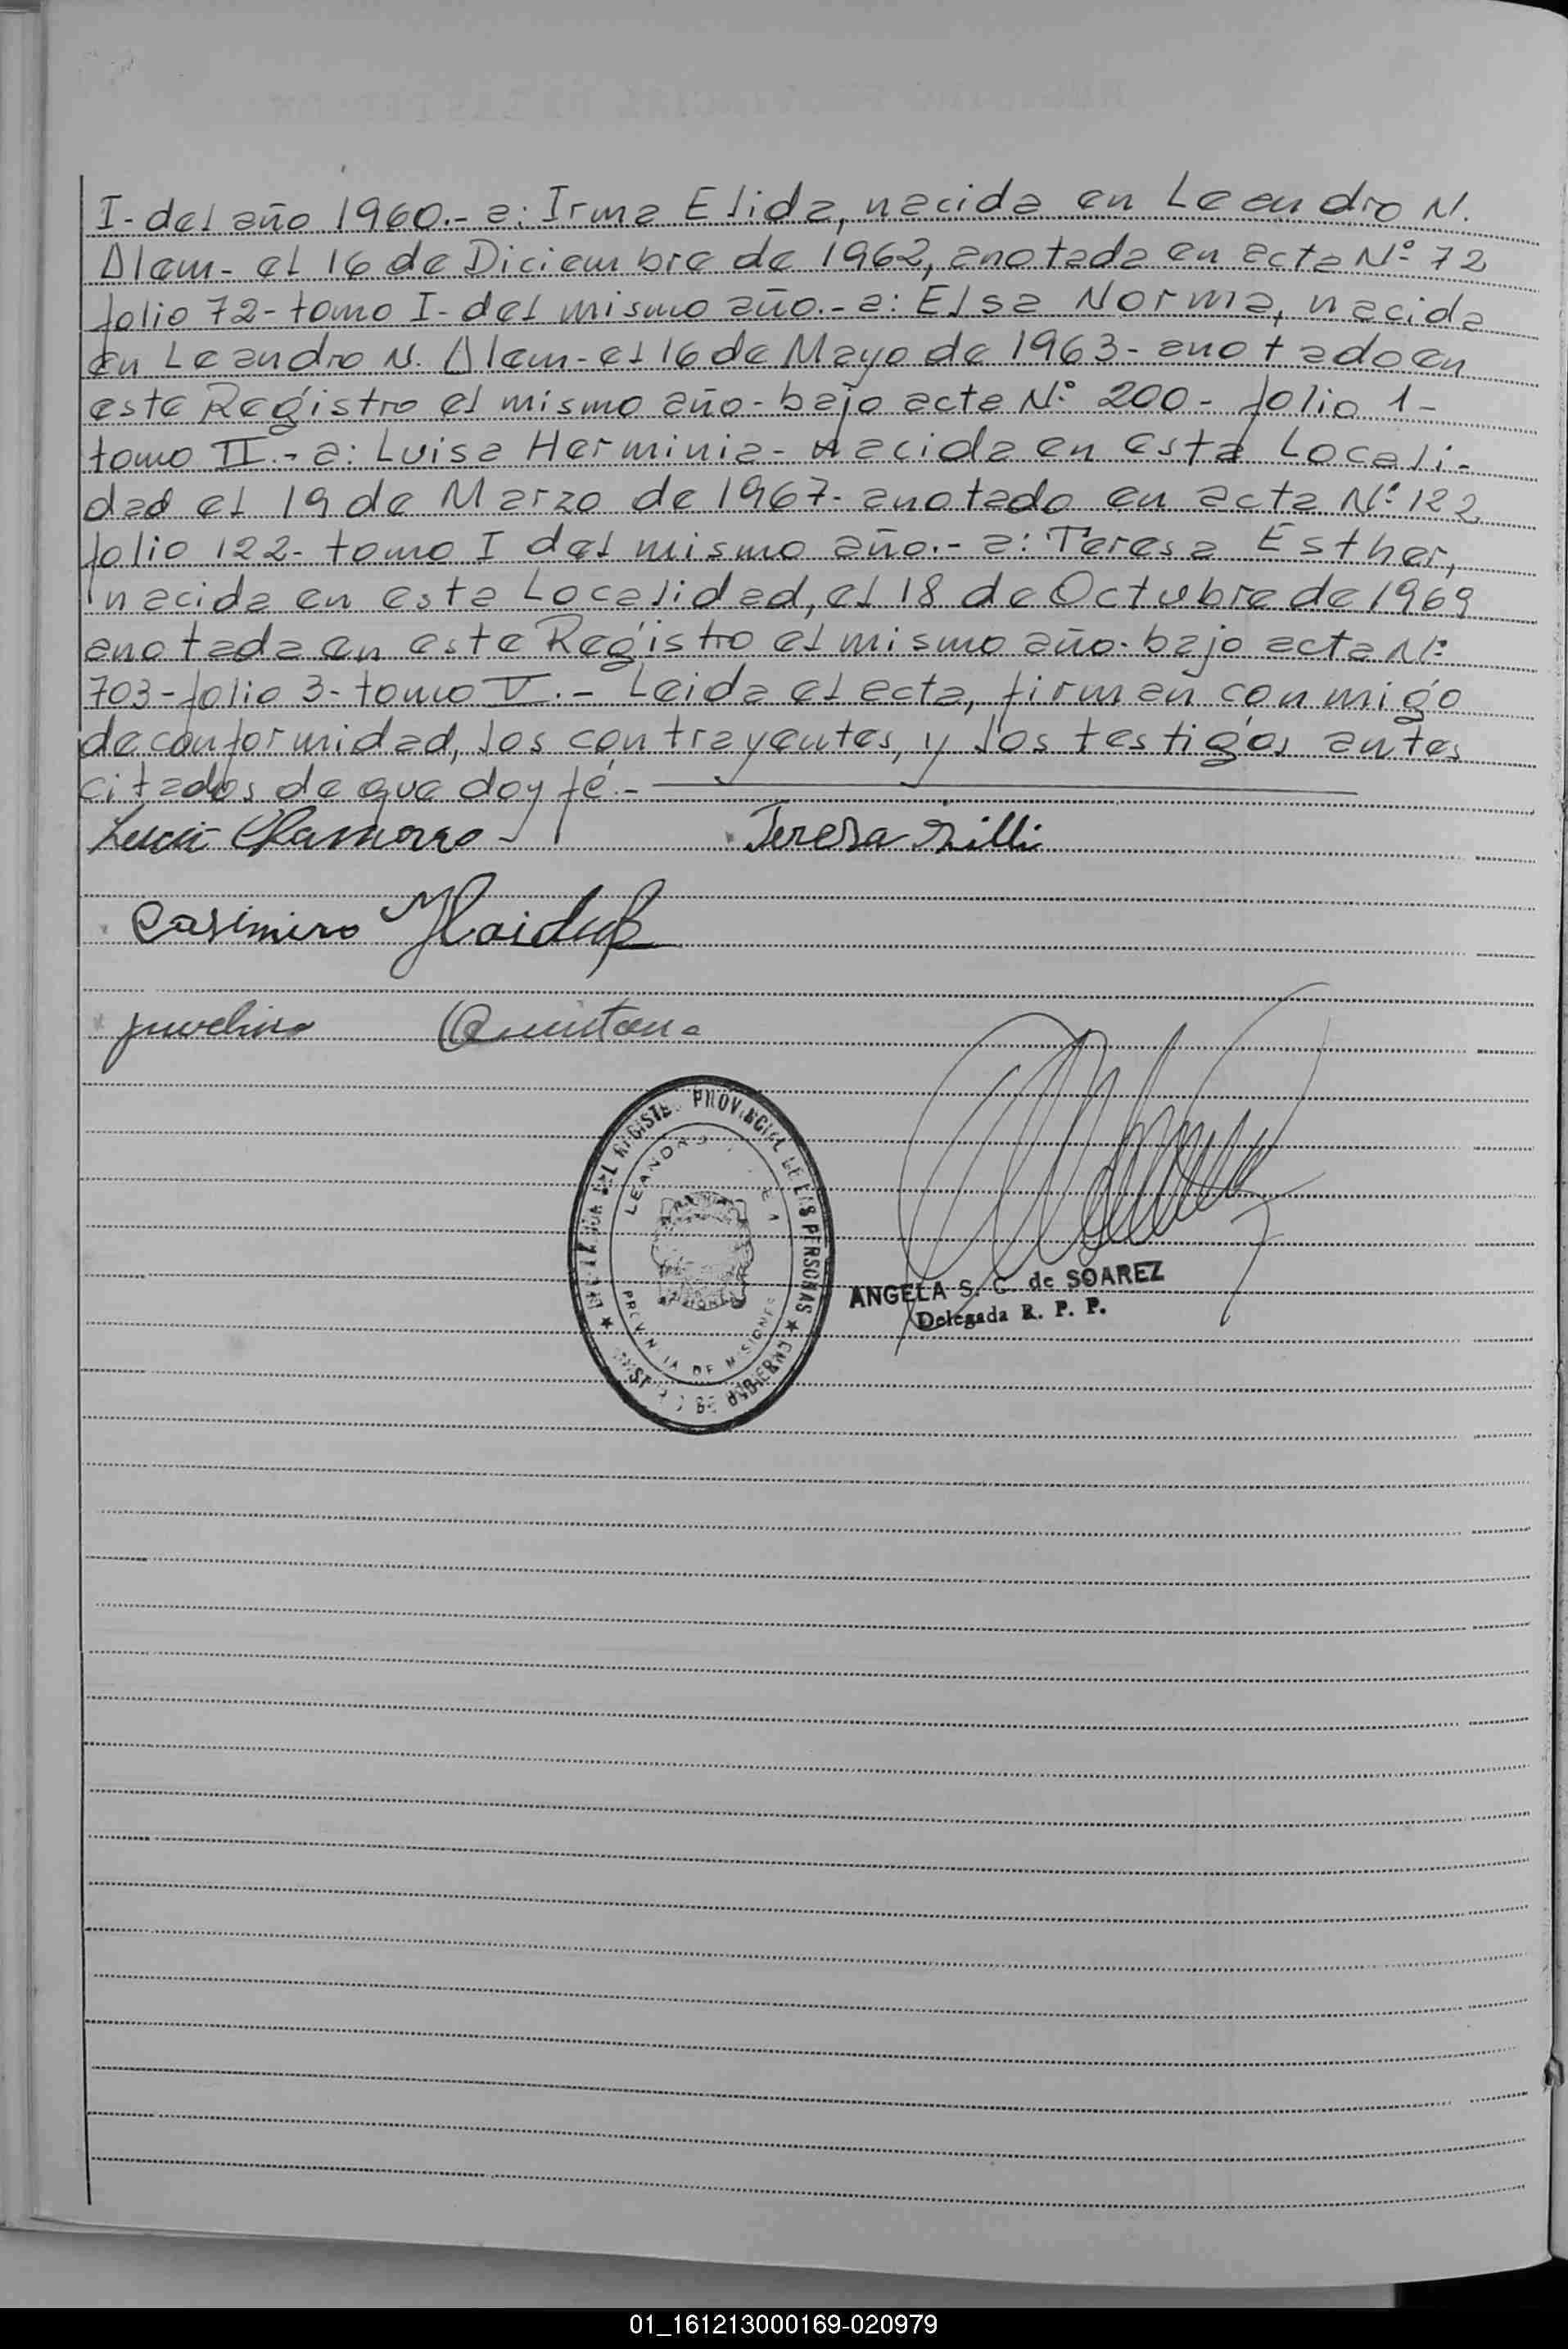 I- del año 1960.- a: Irma Elida, nacida en Leandro N.
Alem- el 16 de Diciembre de 1962, anotada en acta Nº 72
folio 72- tomo I- del mismo año.- a: Elsa Norma, nacida
en Leandro N. Alem- el 16 de Mayo de 1963- anotado en
este Registro el mismo año- bajo acta Nº 200- folio 1-
tomo II.- a: Luisa Herminia- nacida en esta Locali-
dad el 19 de Marzo de 1967- anotado en acta Nº 122
folio 122- tomo I del mismo año.- a: Teresa Esther,
nacida en esta Localidad, el 18 de Octubre de 1969
anotada en este Registro el mismo año- bajo acta Nº
703- folio 3- tomo V.- Leida el acta, firman conmigo
de conformidad, los contrayentes, y los testigos antes
citados de que doy fé.-
Chamorro Teresa Zilli
Casimiro
Juvelino Quintana
DEL REGISTRO PROVINCIAL DE LAS PERSONAS
LEANDRO
PROVINCIA DE MISIONES
DE GOBIERNO
ANGELA S. C. de SOAREZ
Delegada R. P. P.
01_161213000169-020979